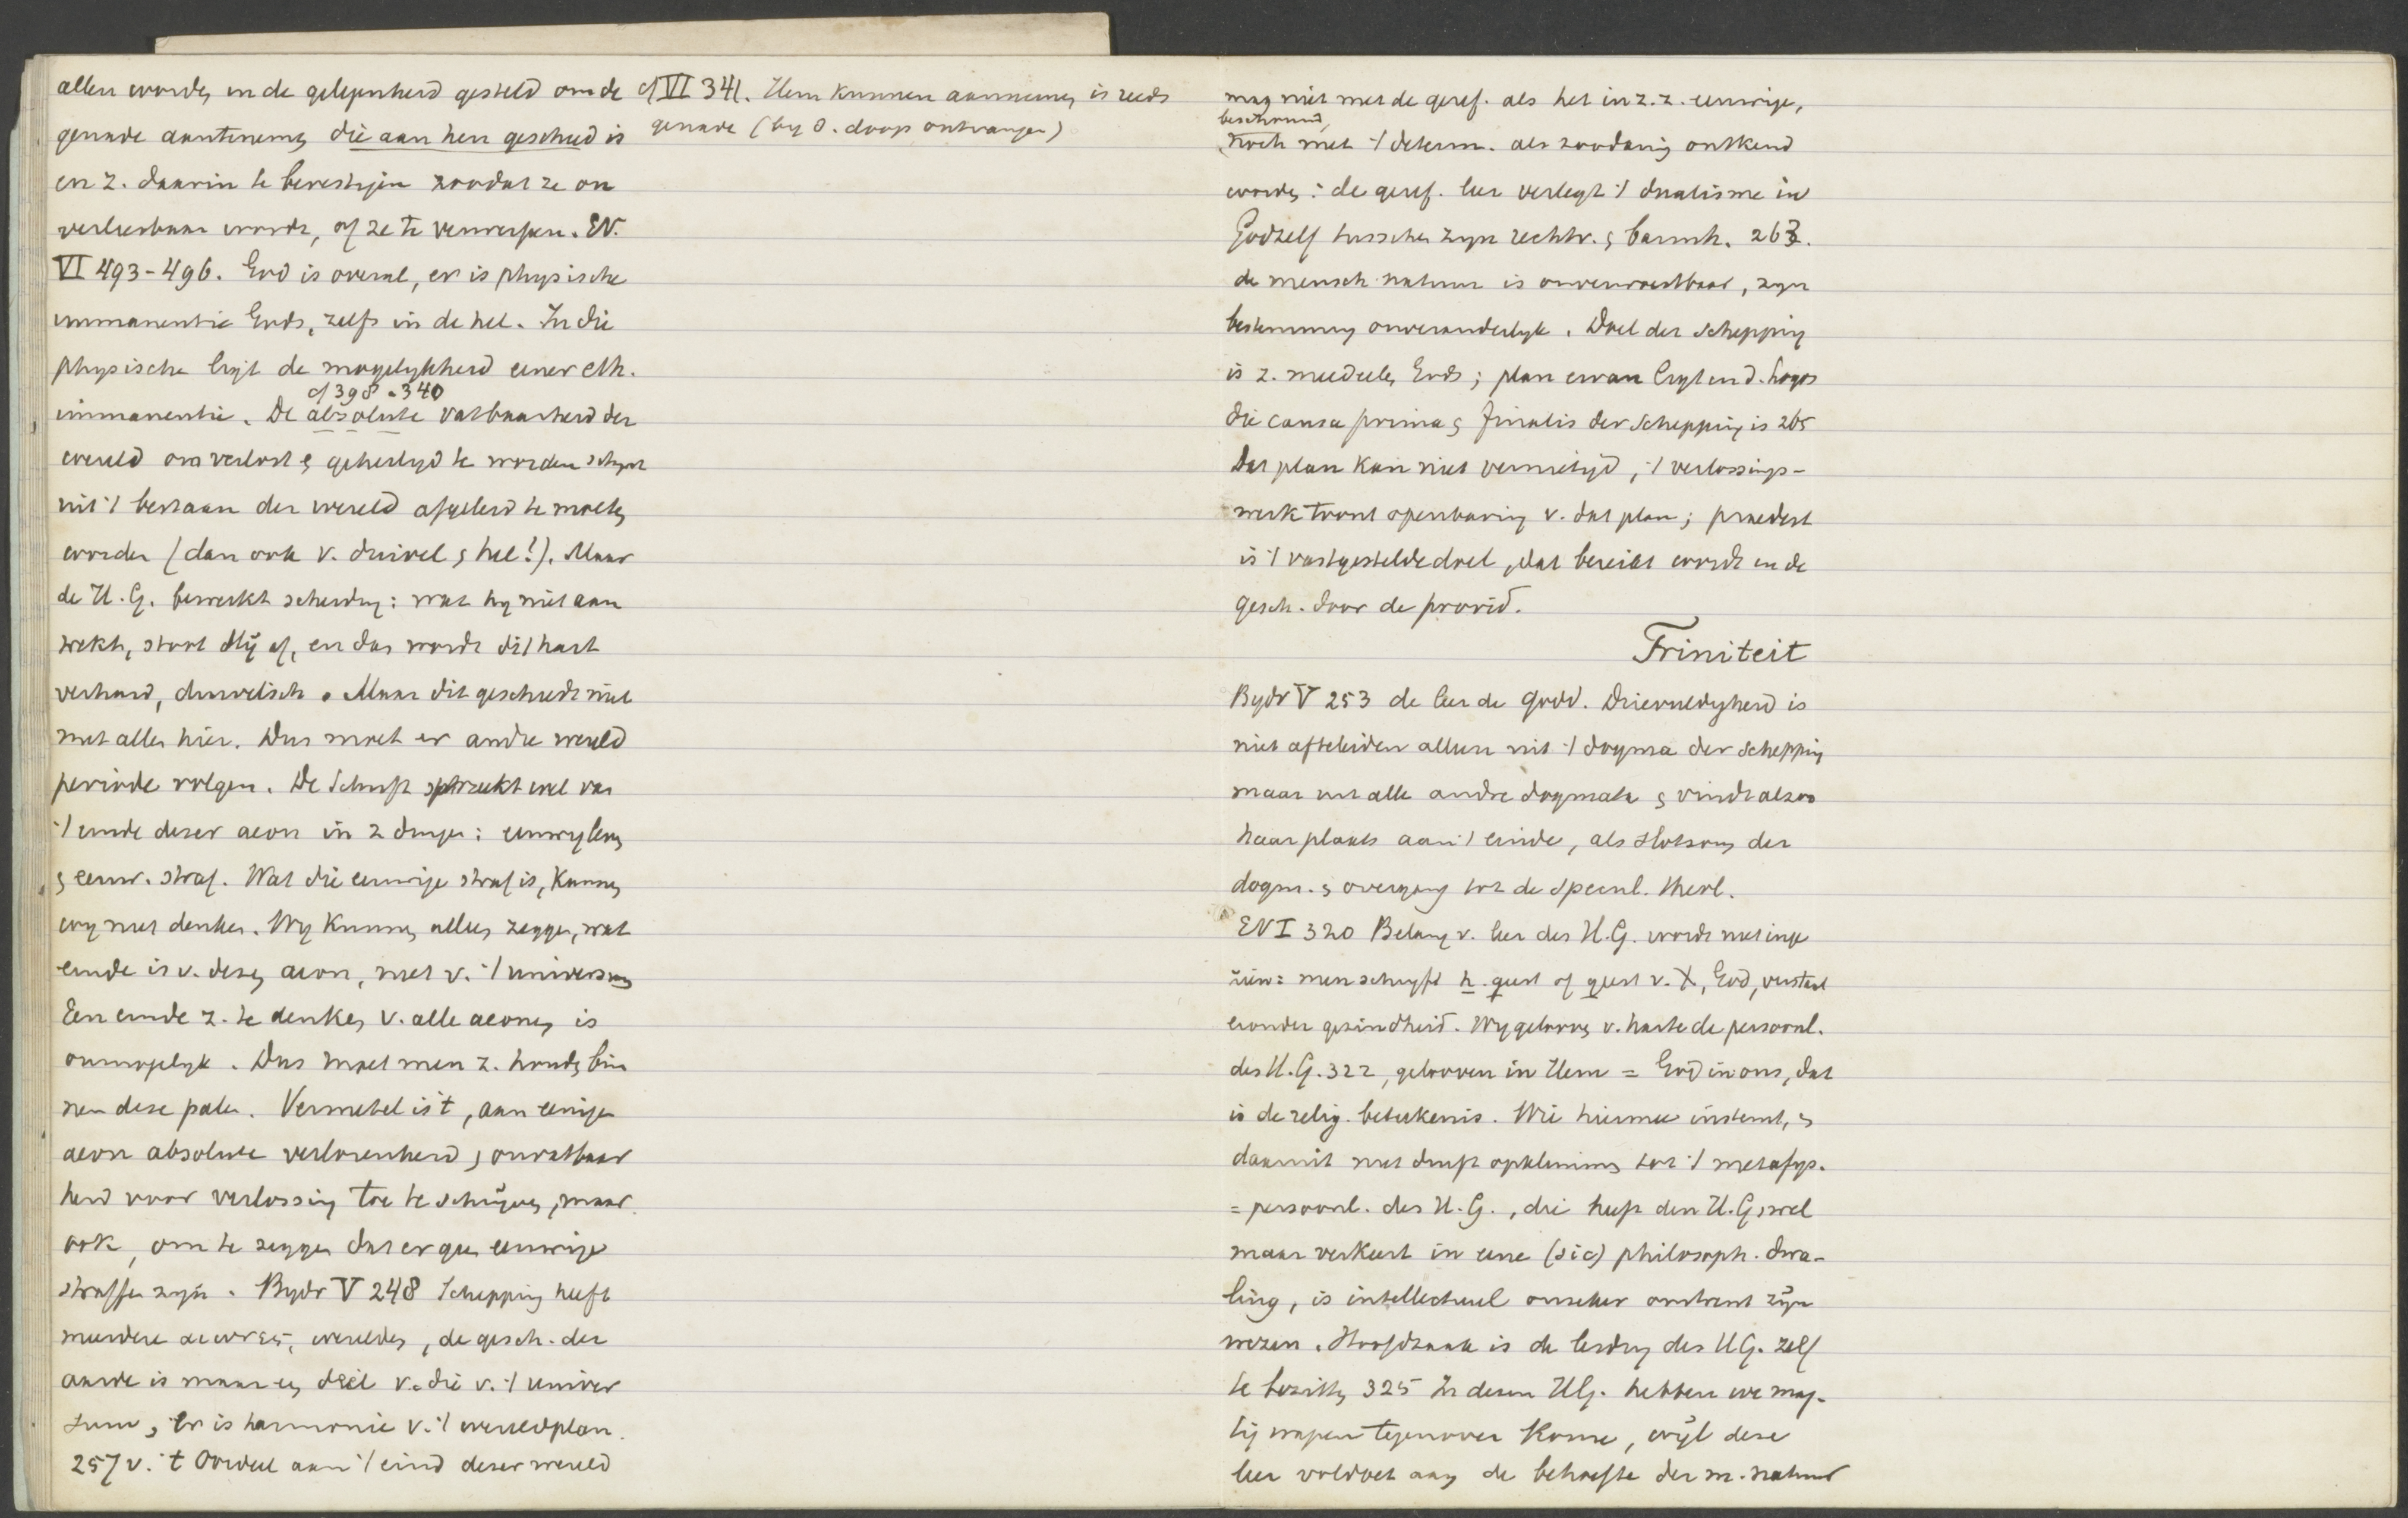 allen worden in de gelegenheid gesteld om de
genade aantenemen die aan hen geschied is
en z. daarin te bevestigen zoodat ze on
verliesbaar wordt, of ze te verwerpen. EV.
VI 493-496. God is overal, er is physische
immanentie Gods, zelfs in de hel. In die
physische ligt de mogelykheid eener eth.
cf 398. 340
immanentie. De absolute vatbaarheid der
wereld om verlost & geheiligd te worden schynt
uit 't bestaan der wereld afgeleid te moeten
worden (dan ook v. duivel & hel!). Maar
de H. G. bewerkt scheiding: wat hy niet aan
trekt, stoot Hij af, en dan wordt dit hart
verhard, duivelsch. Maar dit geschiedt niet
met allen hier. Dus moet er andre wereld
periode volgen. De Schrift spreekt wel van
't einde dezer aeon in 2 dingen: eeuwig leven
& eeuw. straf. Wat die eeuwige straf is, kunnen
wy niet denken. Wy kunnen alleen zeggen, wat
einde is v. dezen aeon, niet v. 't universum
Een einde z. te denken v. alle aeonen is
onmogelyk. Dus moet men z. houden bin
nen deze palen. Vermetel is 't, aan eenigen
aeon absolute verlorenheid & onvatbaar
heid voor verlossing toe te schrijven, maar
ook, om te zeggen dat er geen eeuwige
straffen zyn. Bydr V 248 Schepping heeft
meerdere aeonen, werelden, de gesch. der
aarde is maar een deel v. die v. 't univer
sum, er is harmonie v. 't wereldplan.
257 v. 't Oordeel aan 't eind dezer wereld
cf VI 341. Hem kunnen aannemen is reeds
genade (by d. doop ontvangen)
mag niet met de geref. als het in z. z. eeuwige,
beschouwd,
noch met 't determ. als zoodanig ontkend
worden: de geref. leer verlegt 't dualisme in
Godzelf tusschen zyn rechtv. & barmh. 263.
de mensch natuur is onverwoestbaar, zyn
bestemming onveranderlyk. Doel der Schepping
is z. meedeelen Gods; plan ervan ligt in d. Logos
die causa prima & finalis der Schepping is 265
Dat plan kan niet vernietigd, 't verlossings-
werk toont openbaring v. dat plan; praedest
is 't vastgestelde doel, dat bereikt wordt in de
gesch. door de provid.
Triniteit
Bydr V 253 de leer de Godd. Drievuldigheid is
niet afteleiden alleen uit 't dogma der Schepping
maar uit alle andre dogmata & vindt alzoo
haar plaats aan 't einde, als slotsom der
dogm. & overgang tot de specul. theol.
EV I 320 Belang v. leer des H. G. wordt niet inge
zien: men schryft h. geest of geest v. X, God, verstaat
eronder gezindheid. Wy gelooven v. harte de persoonl.
des H. G. 322, gelooven in Hem = God in ons, dat
is de relig. beteekenis. Wie hiermee instemt, &
daaruit niet durft opklimmen tot 't metafys.
= persoonl. des H. G., die heeft den H. G. wel
maar verkeert in eene (sic) philosoph. dwa-
ling, is intellectueel onzeker omtrent zijn
wezen. Hoofdzaak is de leiding des H G. zelf
te bezitten 325 In dezen H G. hebben we mag-
tig wapen tegenover Rome, wijl deze
leer voldoet aan de behoefte der m. natuur